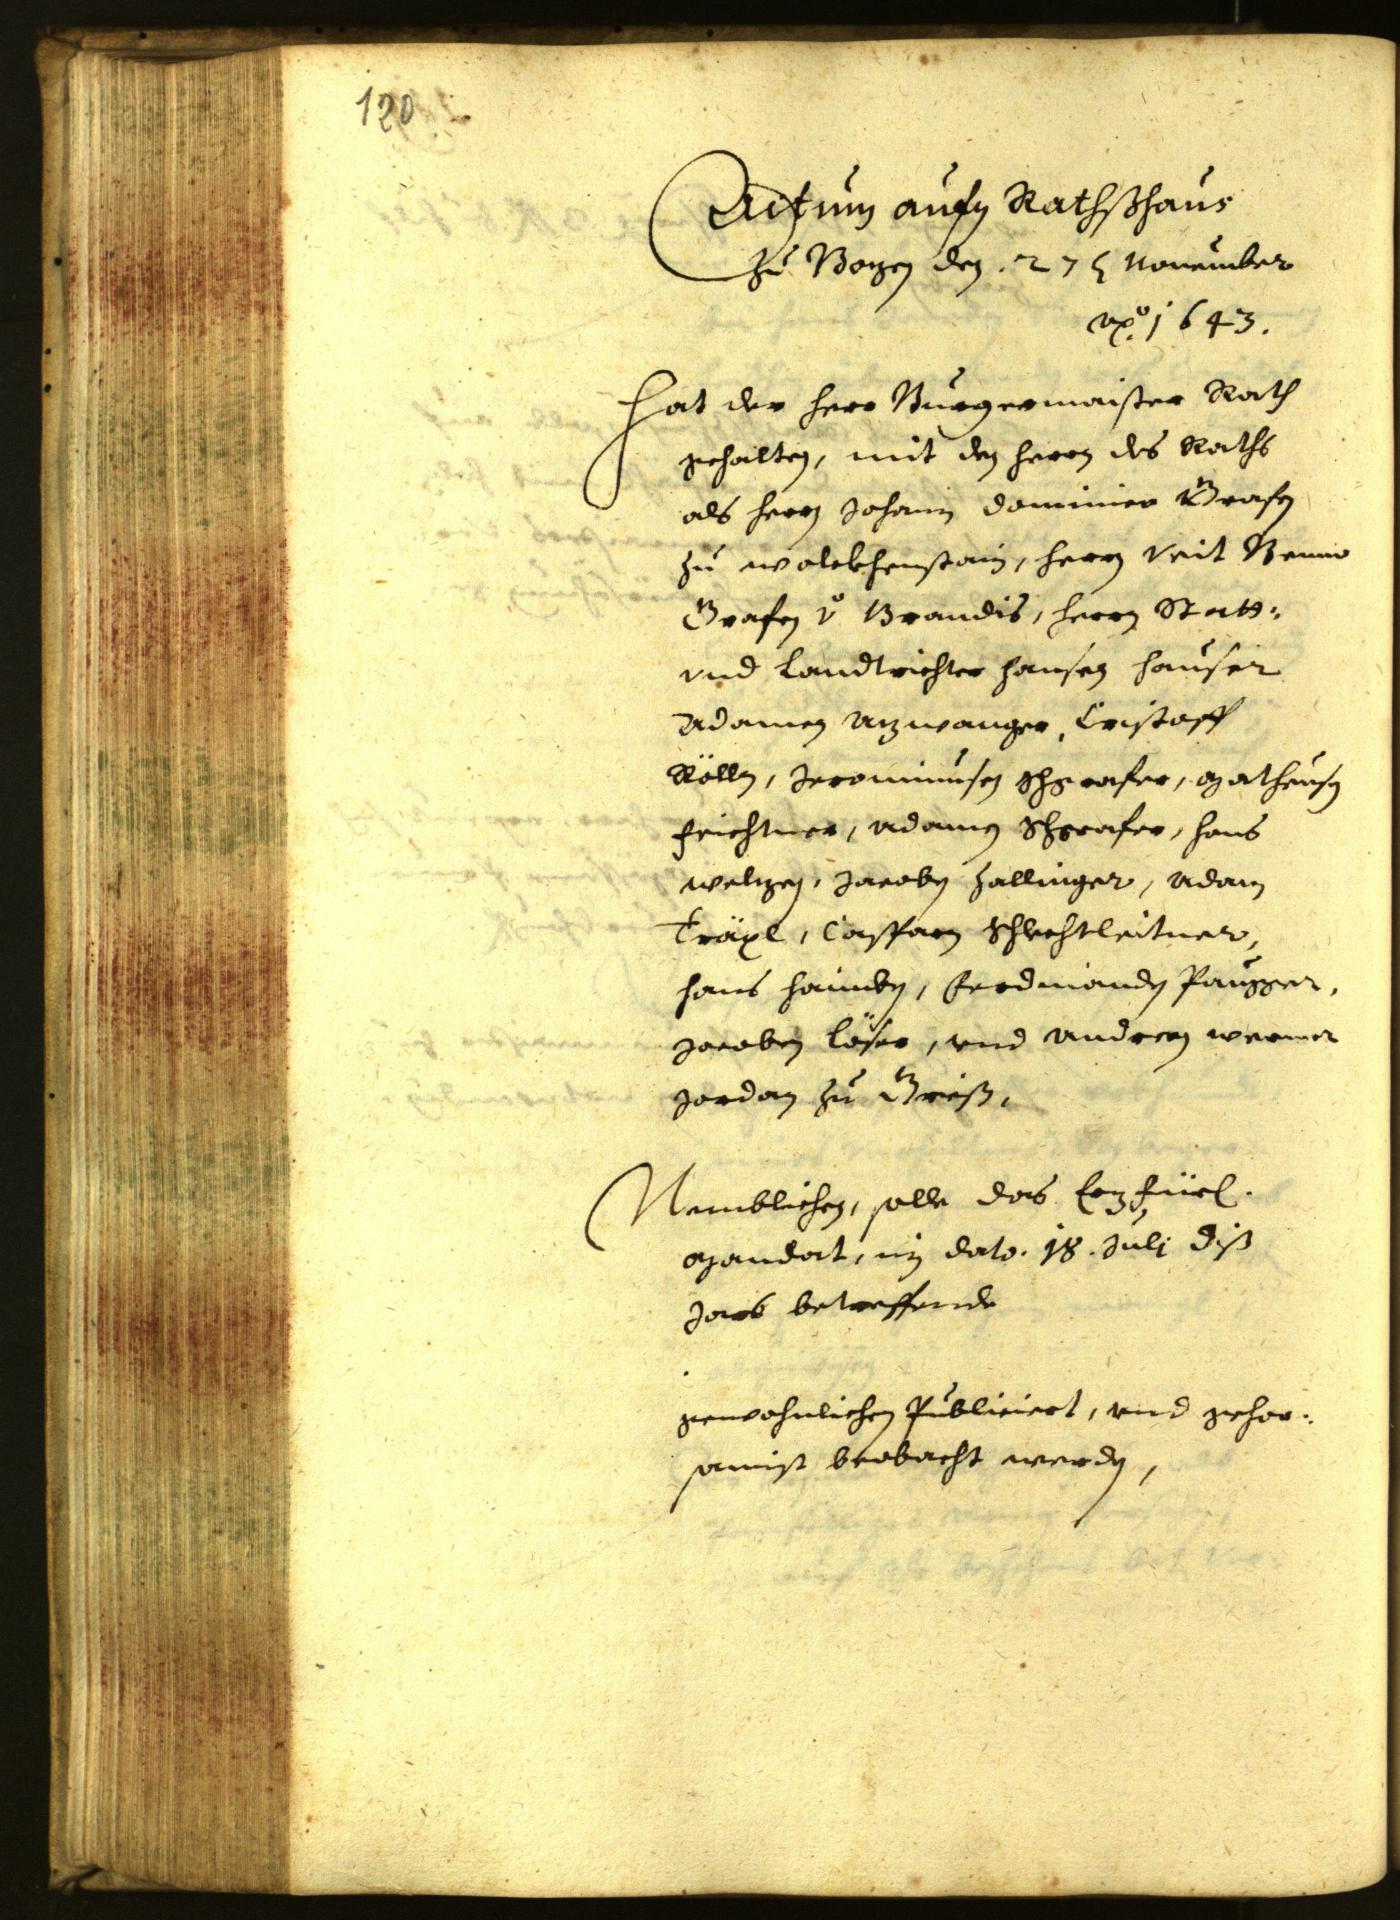 120
Actum aufm Rathßhaus
zu Bozen den .27t November
Ao. 1643.
Hat der herr Burgermaister Rath
gehalten, mit den herrn des Raths
als herrn Johann Dominico Grafen
zu Wolckhenstain, herrn Veit Benno
Grafen vo Brandis, herrn Statt:
vnd Landtrichter Hansen Hauser
Adamen Azwanger, Cristoff
Rölln, Jeronimusen Schgrafer, Matheusen
Feichtner, Adamen Schgrafer, Hans
Welzen, Jacoben Zallinger, Adam
Träxl, Casparn Schlechtleitner,
Hans Haimbn, Ferdinanden Paugger,
Jacoben Löser, vnd Andreen Werner
Jordan zu Grieß,
Nemblichen, solle das Erzfürl.
Mandat, in dato. 18. Julj diß
Jars betreffende
gewohnlichen Publiciert, vnd gehor:
samist beobacht werden,